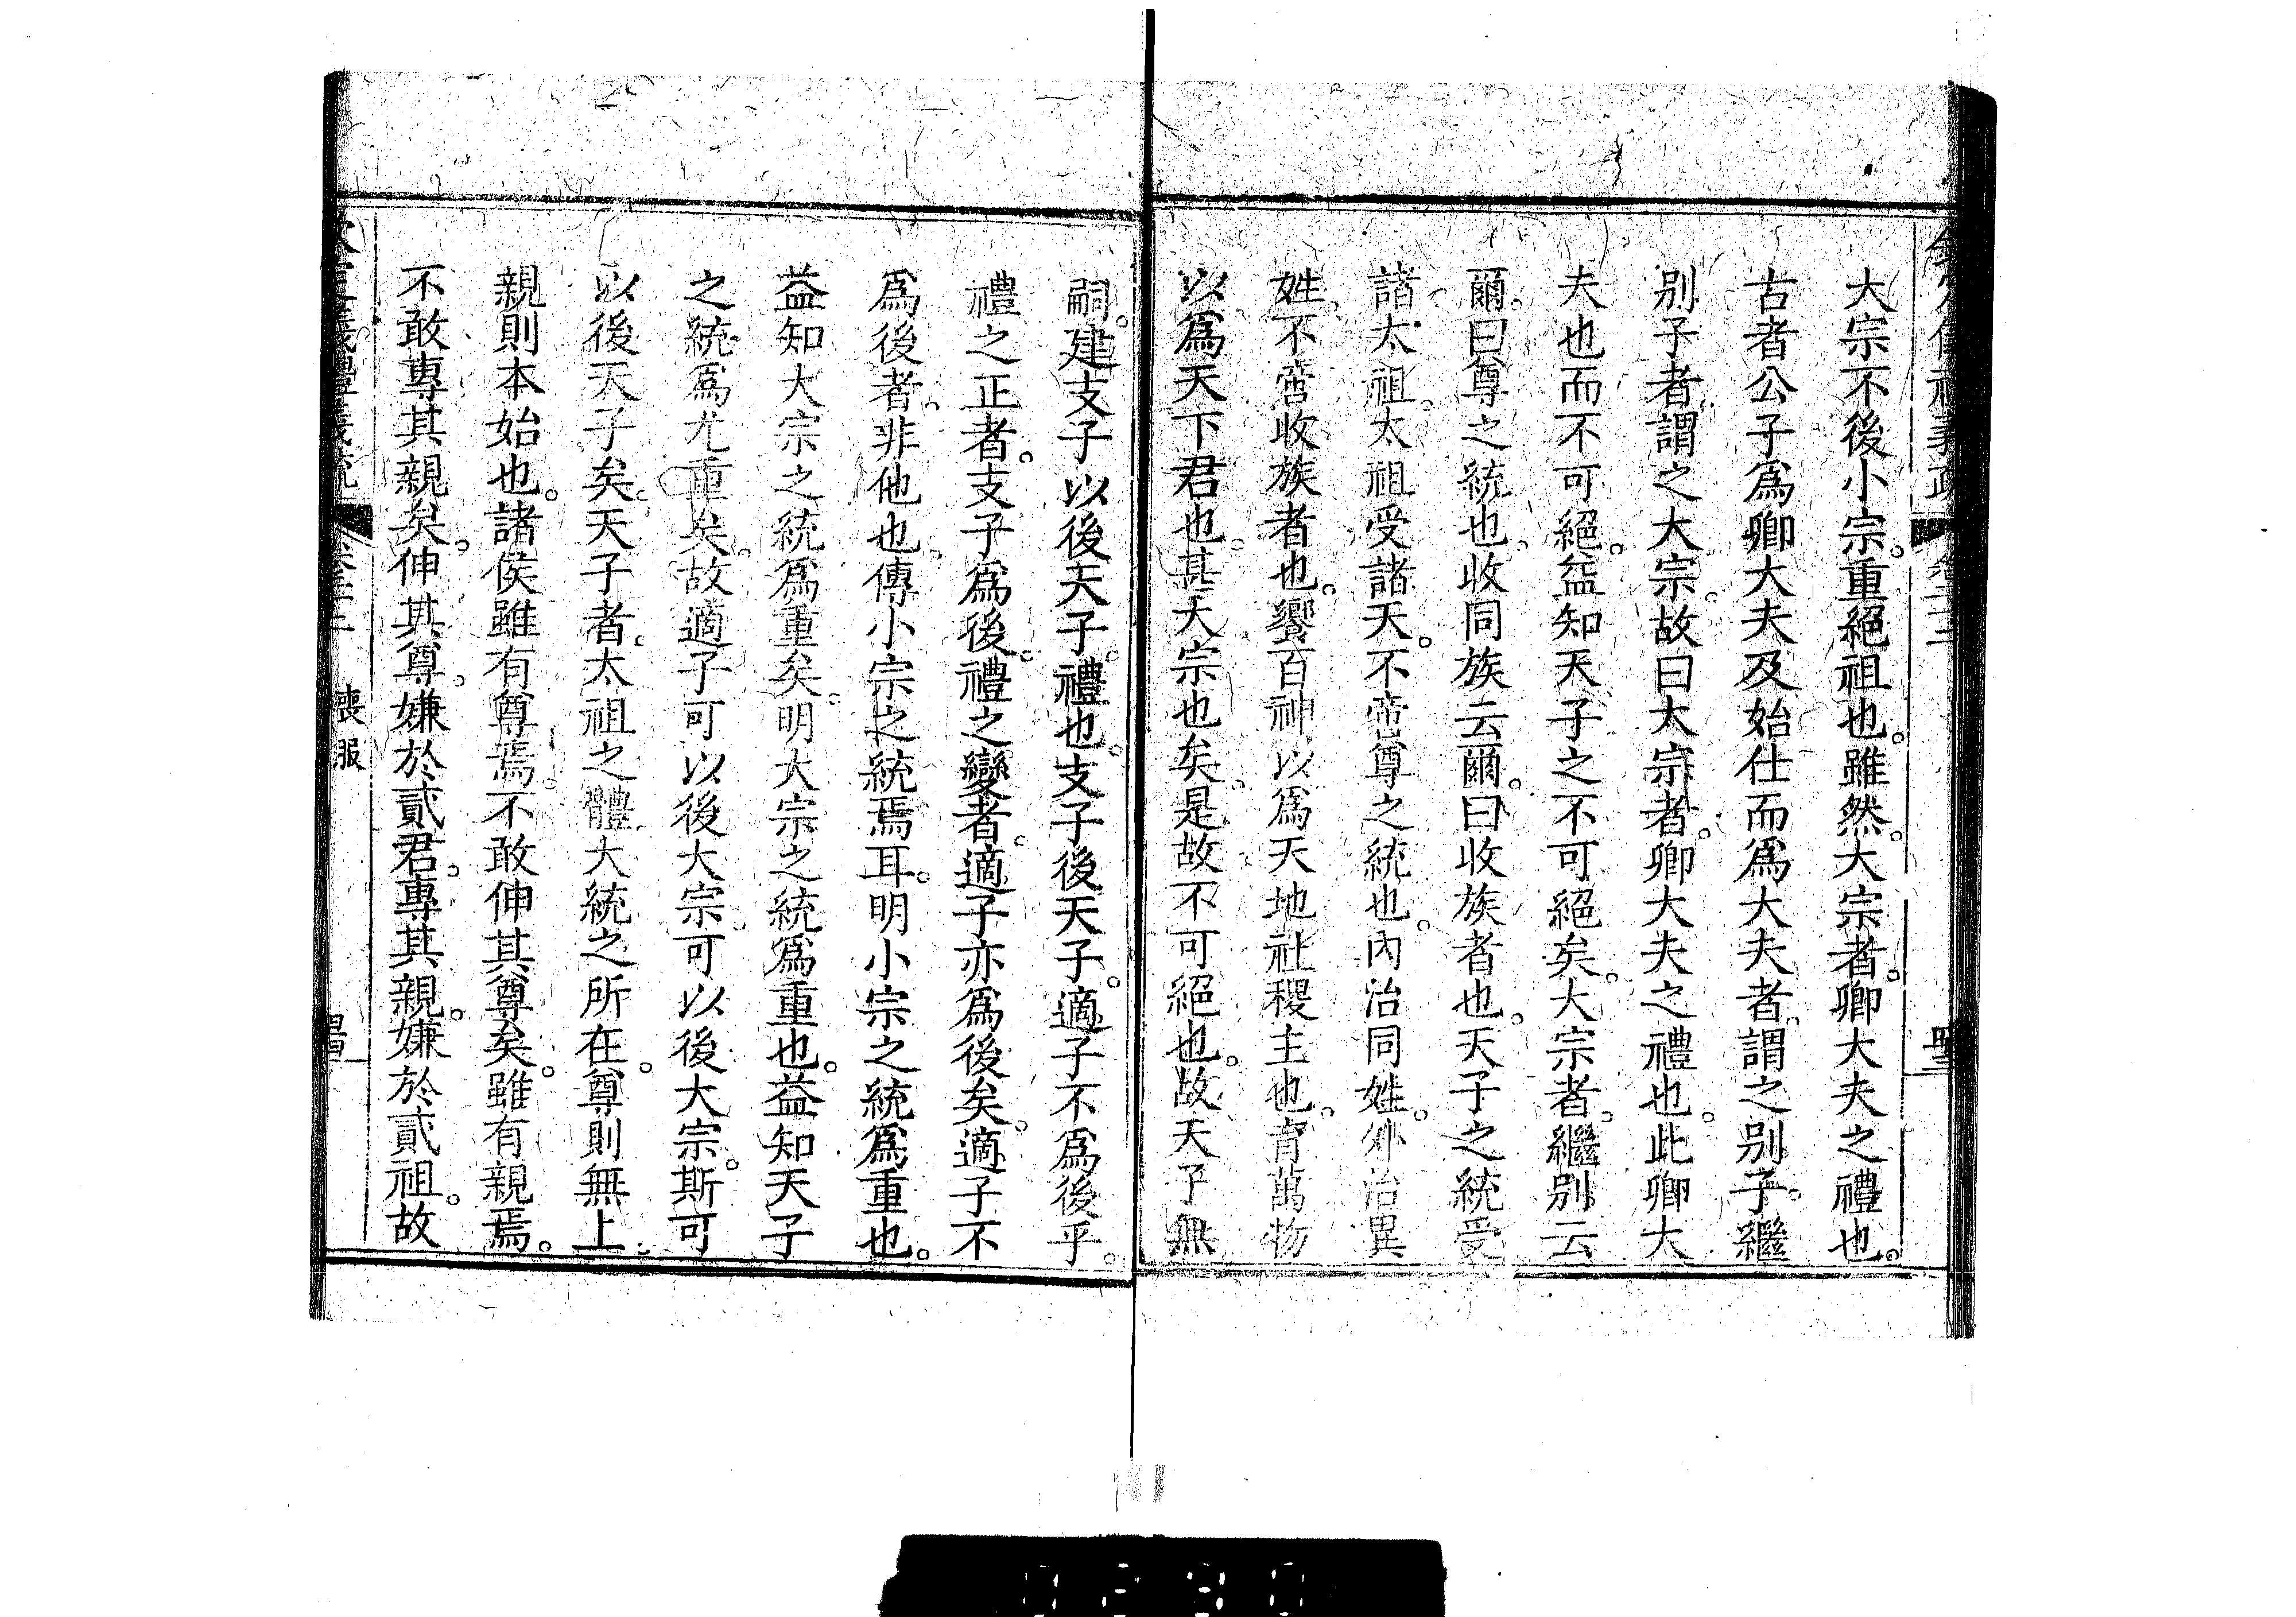 大宗不後小宗。重絕祖也。雖然。大宗者。卿大夫之禮也。
古者公子爲卿大夫及始仕而爲大夫者。謂之別子。繼
別子者。謂之大宗。故曰大宗者。卿大夫之禮也。此卿大
夫也而不可絕。益知天子之不可絕矣。大宗者。繼別云
爾。曰尊之統也。收同族云爾。曰收族者也。天子之統受
諸太祖。太祖受諸天。不啻尊之統也。內治同姓。外治異
姓。不啻收族者也。饗百神以爲天地社稷主也。育萬物
以爲天下君也。甚大宗也矣。是故不可絕也。故天子無
嗣。建支子以後天子。禮也。支子後天子。適子不爲後乎。
禮之正者。支子爲後。禮之變者。適子亦爲後矣。適子不
爲後者。非他也。傳小宗之統焉耳。明小宗之統爲重也。
益知大宗之統爲重矣。明大宗之統爲重也。益知天子
之統爲尤重矣。故適子可以後大宗。可以後大宗。斯可
以後天子矣。天子者。太祖之體。大統之所在。尊則無上。
親則本始也。諸侯雖有尊焉。不敢伸其尊矣。雖有親焉。
不敢專其親矣。伸其尊。嫌於貳君。專其親。嫌於貳祖。故
喪服